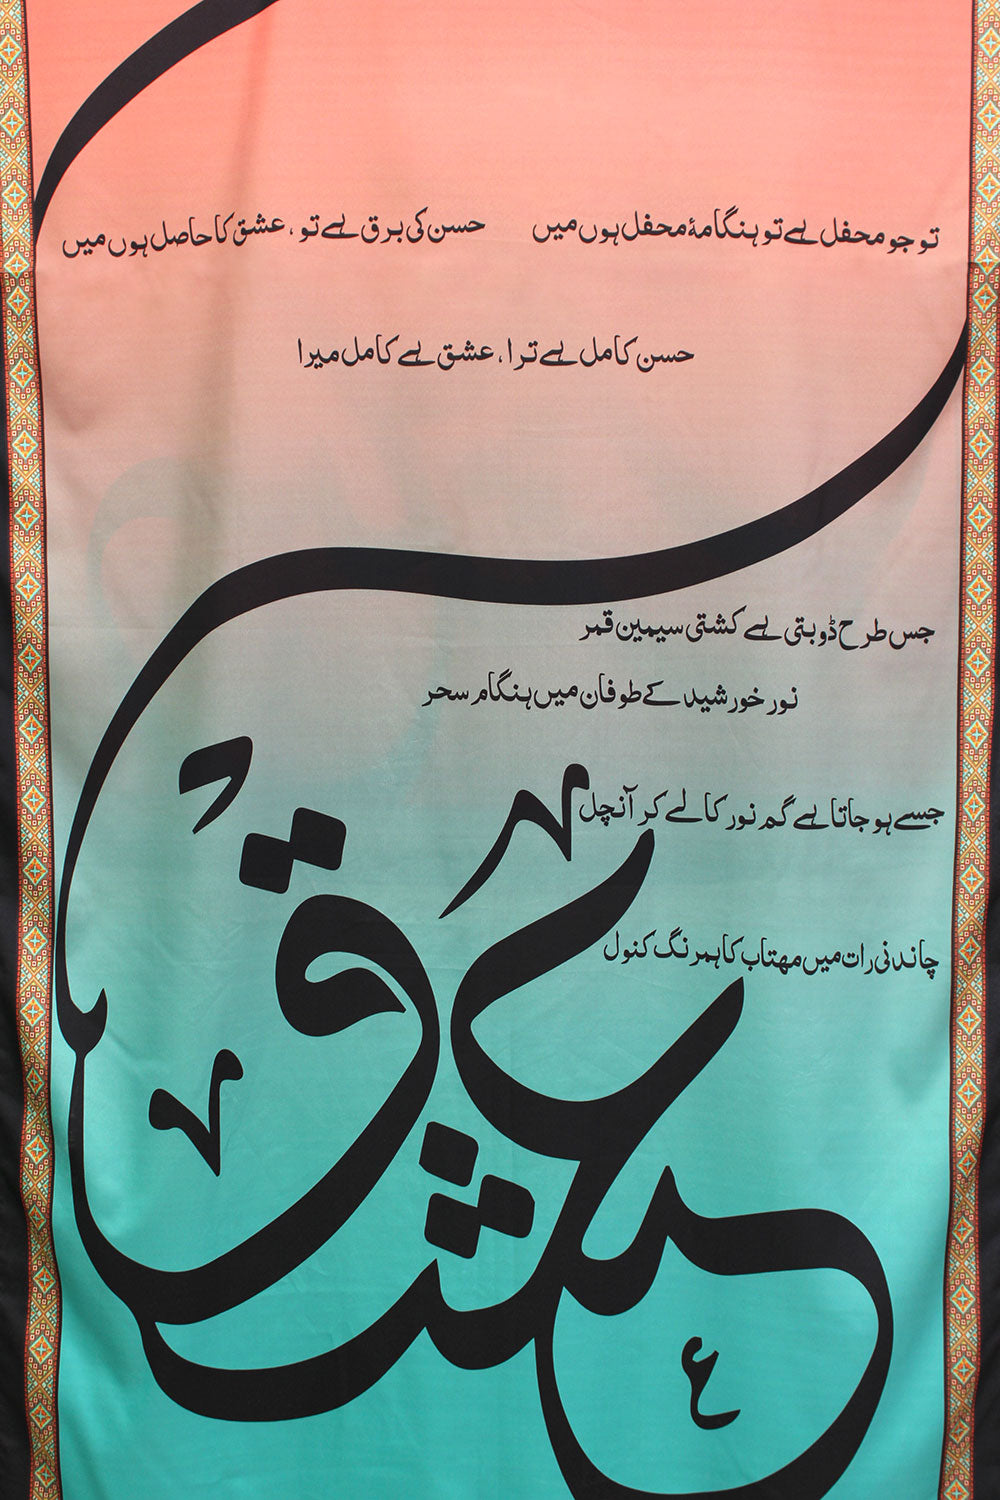 تو جو محفل ہے تو ہنگامۂ محفل ہوں میں حسن کی برق ہے تو ، عشق کا حاصل ہوں میں
حسن کامل ہے ترا ، عشق ہے کامل میرا
جس طرح ڈوبتی ہے کشتی سیمین قمر
نور خورشید کے طوفان میں ہنگام سحر
جسے ہو جاتا ہے گم نور کا لے کر آنچل
چاندنی رات میں مہتاب کا ہمرنگ کنول
عشق